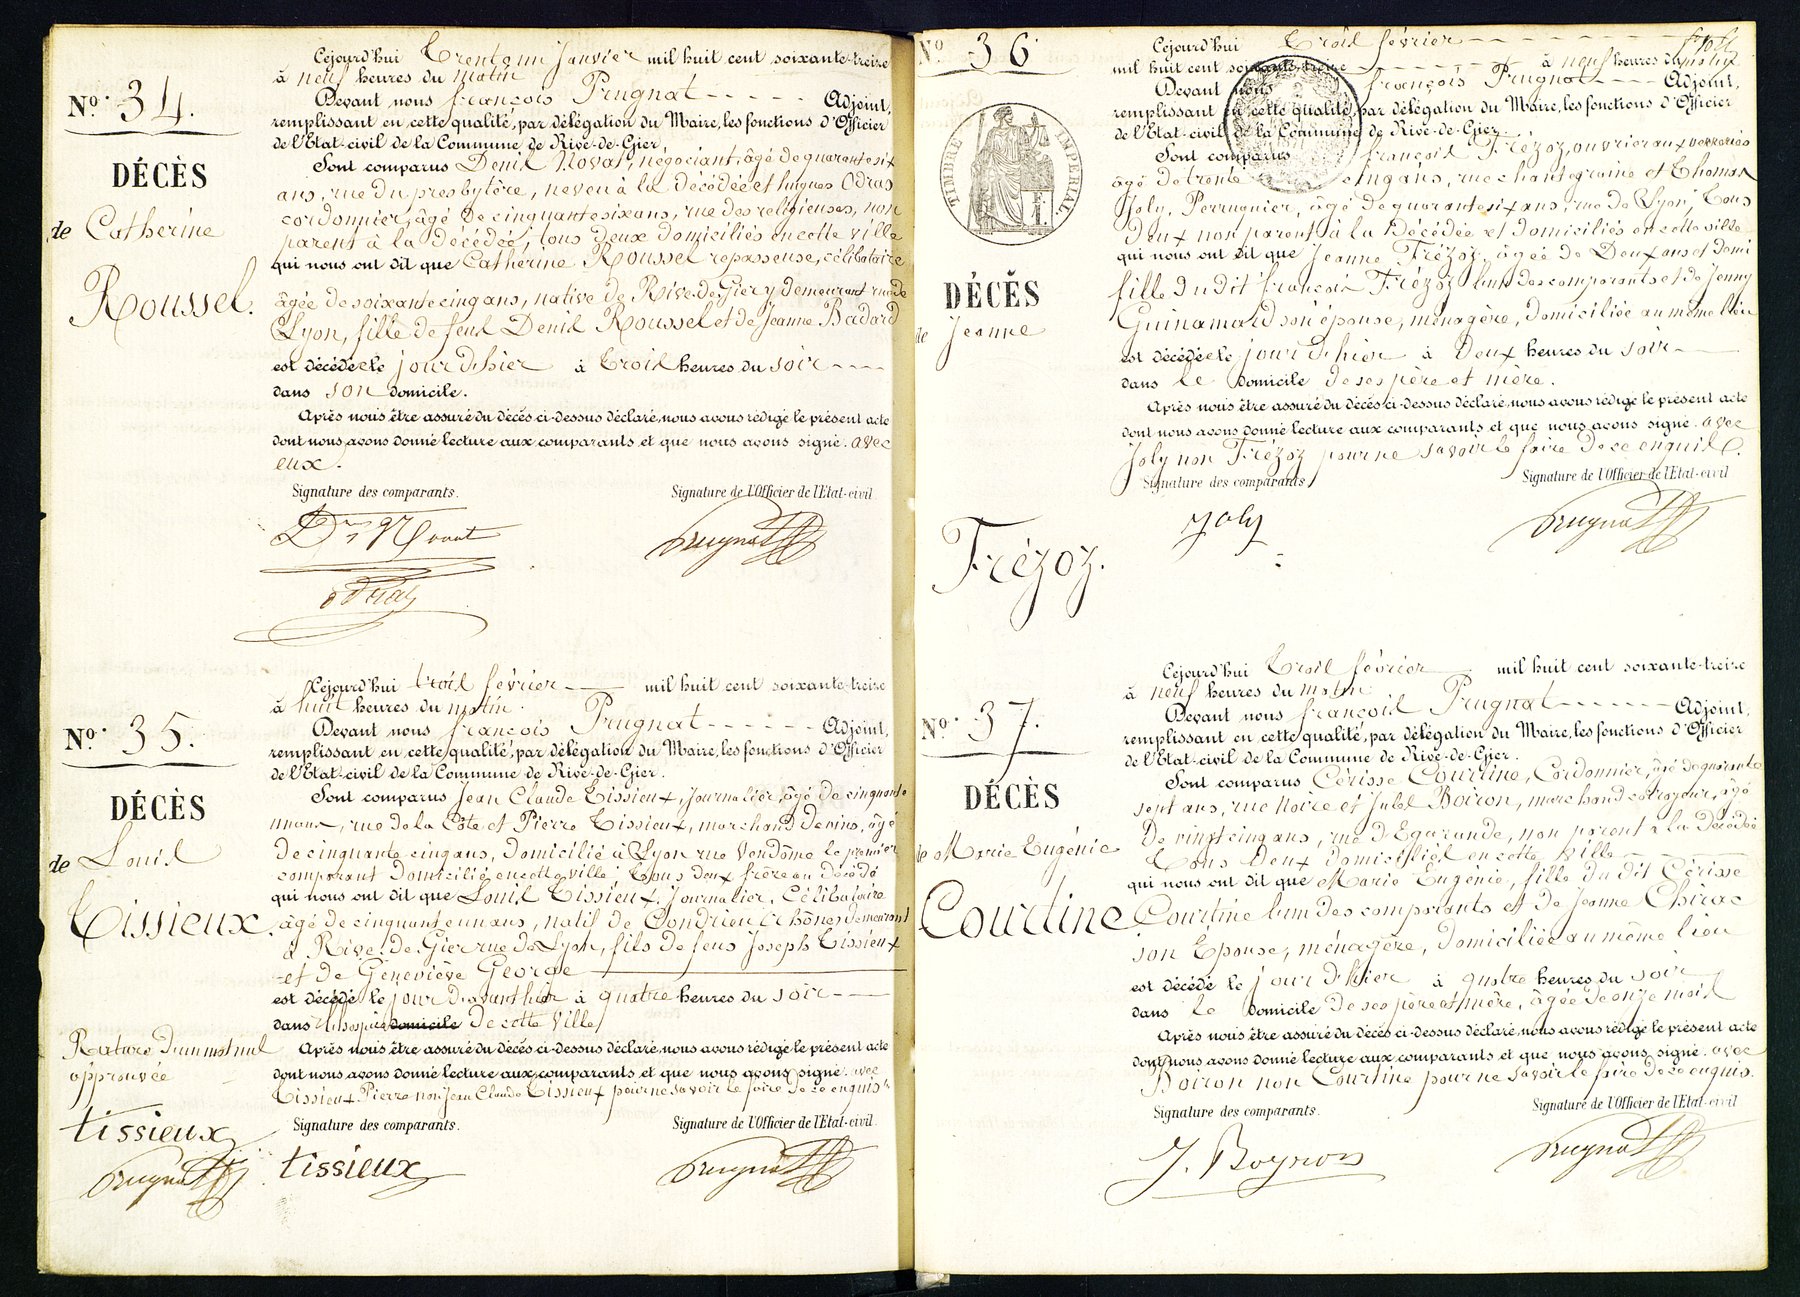 No. 34.
DÉCÈS
de Catherine
Roussel.
Cejourd'hui trente un janvier mil huit cent soixante-treize
à neuf heures du matin
Devant nous françois Prugnat - - - - - Adjoint,
remplissant en cette qualité, par délégation du Maire, les fonctions d'Officier
de l'Etat-civil de la Commune de Rive-de-Gier.
Sont comparus Denis Novat, négociant, âgé de quarante six
ans, rue du presbytère, neveu à la décédée et hugues Odras
cordonnier, âgé de cinquante six ans, rue des religieuses, non
parent à la décédée, tous deux domiciliés en cette ville
qui nous ont dit que Catherine Roussel repasseuse, célibataire
âgée de soixante cinq ans, native de Rive-de-Gier y demeurant rue de
Lyon, fille de feus Denis Roussel et de Jeanne Badard
est décédée le jour d'hier à trois heures du soir - - - -
dans son domicile.
Après nous être assuré du décès ci-dessus déclaré, nous avons rédigé le présent acte
dont nous avons donné lecture aux comparants et que nous avons signé. avec
eux.
Signature des comparants. Signature de l'Officier de l'Etat-civil.
Dis Novat Prugnat
No. 35.
DÉCÈS
de Louis
Tissieux.
Cejourd'hui trois février mil huit cent soixante-treize
à huit heures du matin.
Devant nous françois Prugnat - - - - - - Adjoint,
remplissant en cette qualité, par délégation du Maire, les fonctions d'Officier
de l'Etat-civil de la Commune de Rive-de-Gier.
Sont comparus Jean Claude Tissieux, journalier, âgé de cinquante
neuf ans, rue de la Côte et Pierre Tissieux, marchand de vins, âgé
de cinquante cinq ans, domicilié à Lyon rue Vendôme le premier
comparant domicilié en cette ville. tous deux frère au décédé
qui nous ont dit que Louis Tissieux, journalier, Célibataire
âgé de cinquante un ans, natif de Condrieu (Rhône) demeurant
à Rive-de-Gier rue de Lyon, fils de feus Joseph Tissieux
et de Geneviève George
est décédé le jour d'avant hier à quatre heures du soir - - -
dans l'hospice domicile de cette ville
Après nous être assuré du décès ci-dessus déclaré, nous avons rédigé le présent acte
dont nous avons donné lecture aux comparants et que nous avons signé. avec
Tissieux Pierre non Jean Claude Tissieux pour ne savoir le faire de ce enquis
Rature d'un mot nul
approuvée
tissieux
Prugnat
Signature des comparants. Signature de l'Officier de l'Etat-civil.
tissieux Prugnat
No. 36
TIMBRE IMPERIAL.
DÉCÈS
de Jeanne
Frézoz.
Cejourd'hui trois février - - - - - - - -
mil huit cent soixante-treize - - - - - - à neuf heures du matin
Devant nous françois Prugnat - - - Adjoint,
remplissant en cette qualité, par délégation du Maire, les fonctions d'Officier
de l'Etat-civil de la Commune de Rive-de-Gier.
Sont comparus françois Frézoz, ouvrier aux verreries
âgé de trente cinq ans, rue chantegraine et Thomas
Joly, Perruquier, âgé de quarante six ans, rue de Lyon, tous
deux non parent à la décédée et domiciliés en cette ville
qui nous ont dit que Jeanne Frézoz, âgée de Deux ans et demi
fille du dit françois Frézoz l'un des comparants et de Jenny
Guinamard son épouse, ménagère, domiciliée au même lieu
est décédée le jour d'hier à Deux heures du soir
dans le domicile de ses père et mère.
Après nous être assuré du décès ci-dessus déclaré, nous avons rédigé le présent acte
dont nous avons donné lecture aux comparants et que nous avons signé. avec
Joly non Frézoz pour ne savoir le faire de ce enquis.
Signature des comparants. Signature de l'Officier de l'Etat-civil
Joly Prugnat
No. 37.
DÉCÈS
de Marie Eugénie
Courtine
Cejourd'hui trois février mil huit cent soixante-treize
à neuf heures du matin
Devant nous françois Prugnat - - - - - - Adjoint,
remplissant en cette qualité, par délégation du Maire, les fonctions d'Officier
de l'Etat-civil de la Commune de Rive-de-Gier.
Sont comparus Cérisse Courtine, Cordonnier, âgé de quarante
sept ans, rue Noire et Jules Boiron, marchand cotroyeur, âgé
de vingt cinq ans, rue d'Egarande, non parent à la décédée
tous deux domiciliés en cette ville
qui nous ont dit que Marie Eugénie, fille du dit Cérisse
Courtine l'un des comparants et de Jeanne Chirac
son Epouse, ménagère, domiciliée au même lieu
est décédé le jour d'hier à quatre heures du soir
dans le domicile de ses père et mère, âgée de onze mois
Après nous être assuré du décès ci-dessus déclaré, nous avons rédigé le présent acte
dont nous avons donné lecture aux comparants et que nous avons signé. avec
Boiron non Courtine pour ne savoir le faire de ce enquis.
Signature des comparants. Signature de l'Officier de l'Etat-civil
J. Boyron Prugnat